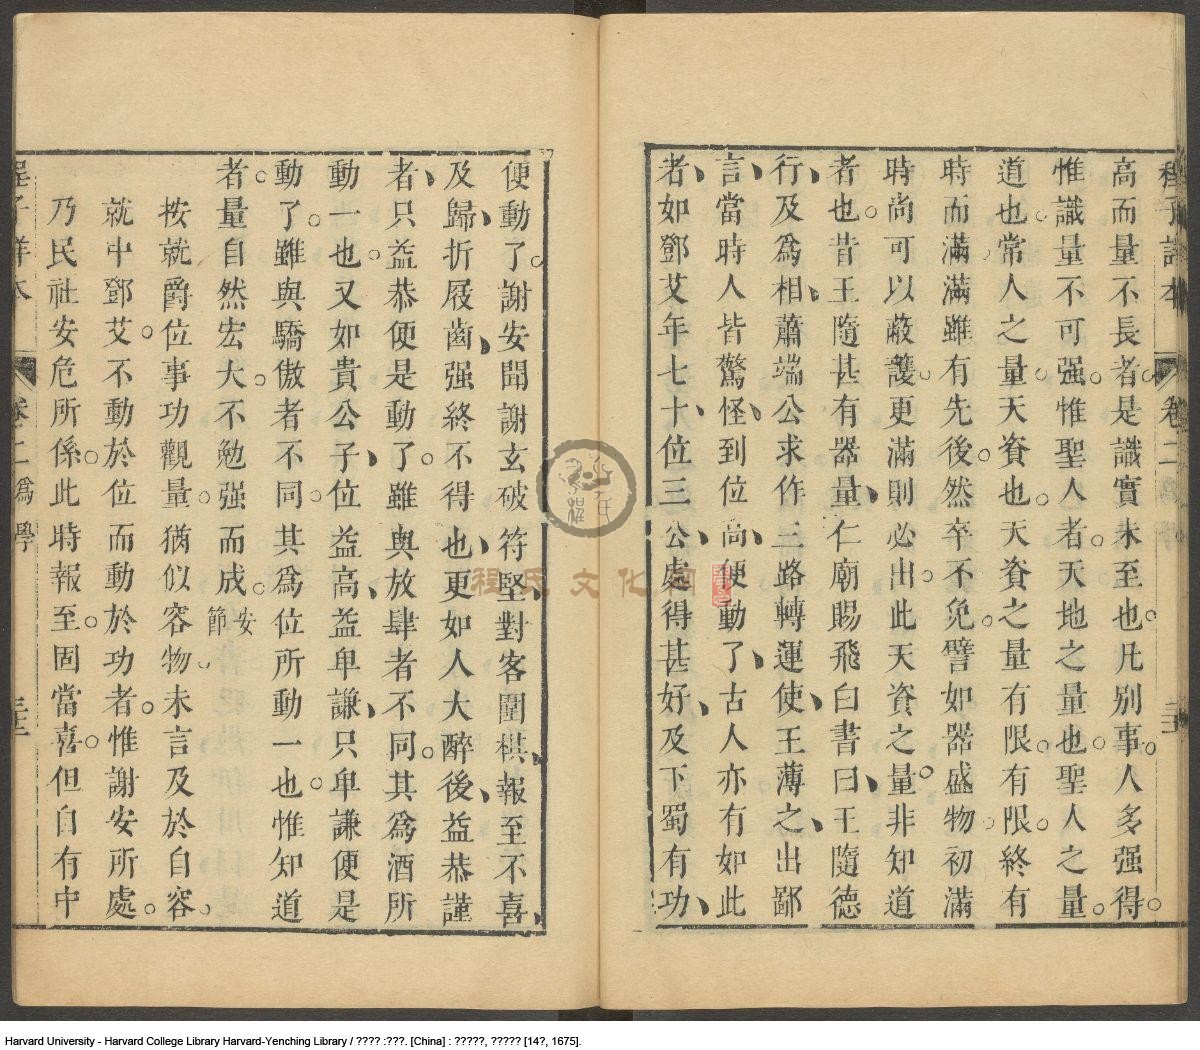 程子詳本 卷二爲學
高而量不長者是識實未至也凡别事人多强得
惟識量不可强惟聖人者天地之量也聖人之量
道也常人之量天資也天資之量有限有限終有
時而滿滿雖有先後然卒不免譬如器盛物初滿
時尚可以蔽護更滿則必出此天資之量非知道
者也昔王隨甚有器量仁廟賜飛白書曰王隨德
行及爲相蕭端公求作三路轉運使王薄之出鄙
言當時人皆驚怪到位高便動了古人亦有如此
者如鄧艾年七十位三公處得甚好及下蜀有功
便動了謝安聞謝玄破符堅對客圍棋報至不喜
及歸折屐齒强終不得也更如人大醉後益恭謹
者只益恭便是動了雖與放肆者不同其爲酒所
動一也又如貴公子位益高益卑謙只卑謙便是
動了雖與驕傲者不同其爲位所動一也惟知道
者量自然宏大不勉强而成安節
按就爵位事功觀量猶似容物未言及於自容
就中鄧艾不動於位而動於功者惟謝安所處
乃民社安危所係此時報至固當喜但自有中
程子詳本 卷二爲學
程氏文化
Harvard University - Harvard College Library Harvard-Yenching Library / ???? :???. [China] : ?????, ????? [14?, 1675].